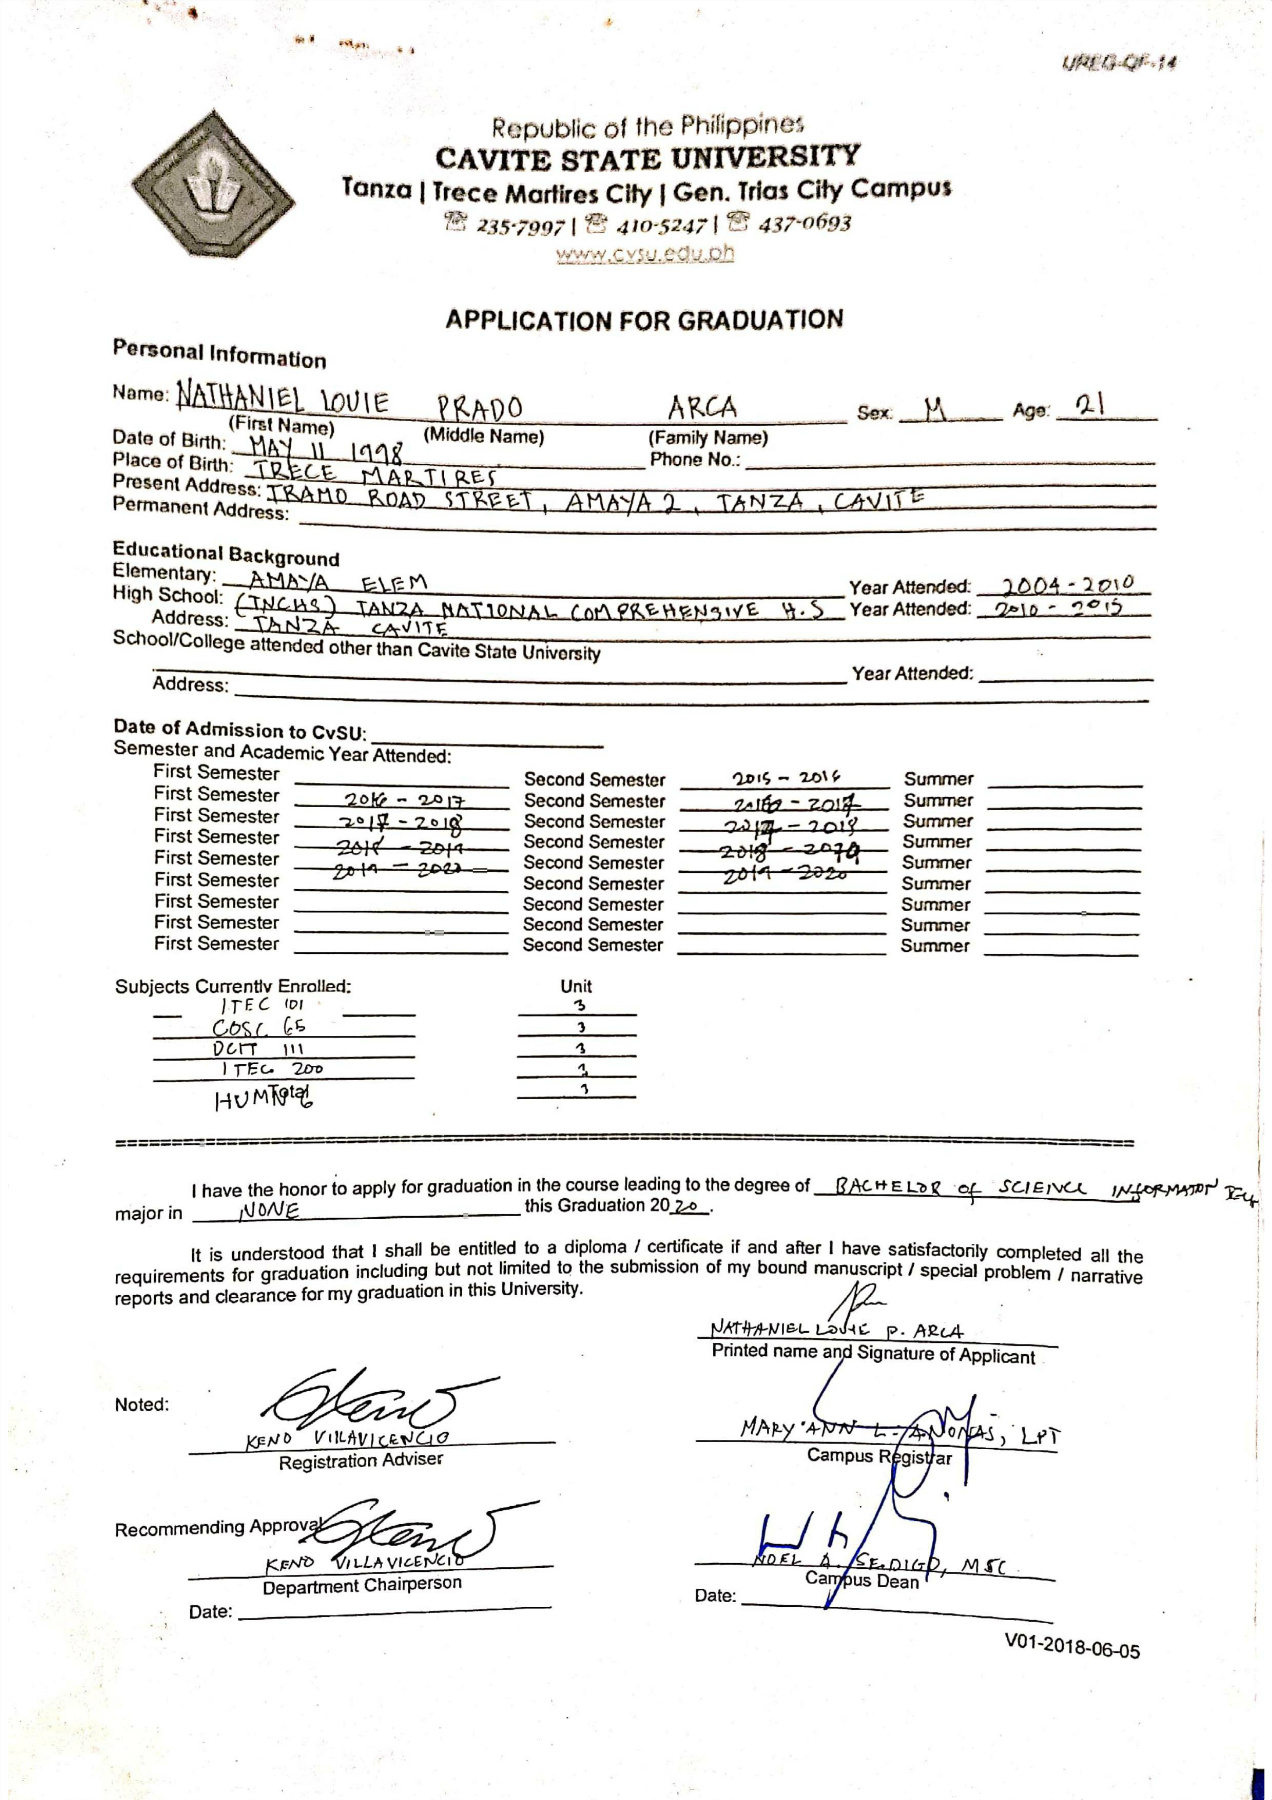 UREG-QF-14
Republic of the Philippines
CAVITE STATE UNIVERSITY
Tanza | Trece Martires City | Gen. Trias City Campus
☏ 235-7997 | ☏ 410-5247 | ☏ 437-0693
www.cvsu.edu.ph
APPLICATION FOR GRADUATION
Personal Information
Name: NATHANIEL LOUIE PRADO ARCA Sex: M Age: 21
(First Name) (Middle Name) (Family Name)
Date of Birth: MAY 11 1998 Phone No.:
Place of Birth: TRECE MARTIRES
Present Address: TRAMO ROAD STREET, AMAYA 2, TANZA, CAVITE
Permanent Address:
Educational Background
Elementary: AMAYA ELEM Year Attended: 2004-2010
High School: (TNCHS) TANZA NATIONAL COMPREHENSIVE H.S Year Attended: 2010-2015
Address: TANZA CAVITE
School/College attended other than Cavite State University
Year Attended:
Address:
Date of Admission to CvSU:
Semester and Academic Year Attended:
First Semester Second Semester 2015-2016 Summer
First Semester 2016-2017 Second Semester 2016-2017 Summer
First Semester 2017-2018 Second Semester 2017-2018 Summer
First Semester 2018-2019 Second Semester 2018-2019 Summer
First Semester 2019-2020 Second Semester 2019-2020 Summer
First Semester Second Semester Summer
First Semester Second Semester Summer
First Semester Second Semester Summer
First Semester Second Semester Summer
Subjects Currently Enrolled: Unit
ITEC 101 3
COSC 65 3
DCIT 111 3
ITEC 200 3
HUM Total 3
I have the honor to apply for graduation in the course leading to the degree of BACHELOR OF SCIENCE INFORMATION TECH
major in NONE this Graduation 2020.
It is understood that I shall be entitled to a diploma / certificate if and after I have satisfactorily completed all the
requirements for graduation including but not limited to the submission of my bound manuscript / special problem / narrative
reports and clearance for my graduation in this University.
NATHANIEL LOUIE P. ARCA
Printed name and Signature of Applicant
Noted:
KENO VILLAVICENCIO MARY ANN L. ANONAS, LPT
Registration Adviser Campus Registrar
Recommending Approval
KENO VILLAVICENCIO NOEL A. SEDIGO, MSC
Department Chairperson Campus Dean
Date: Date:
V01-2018-06-05